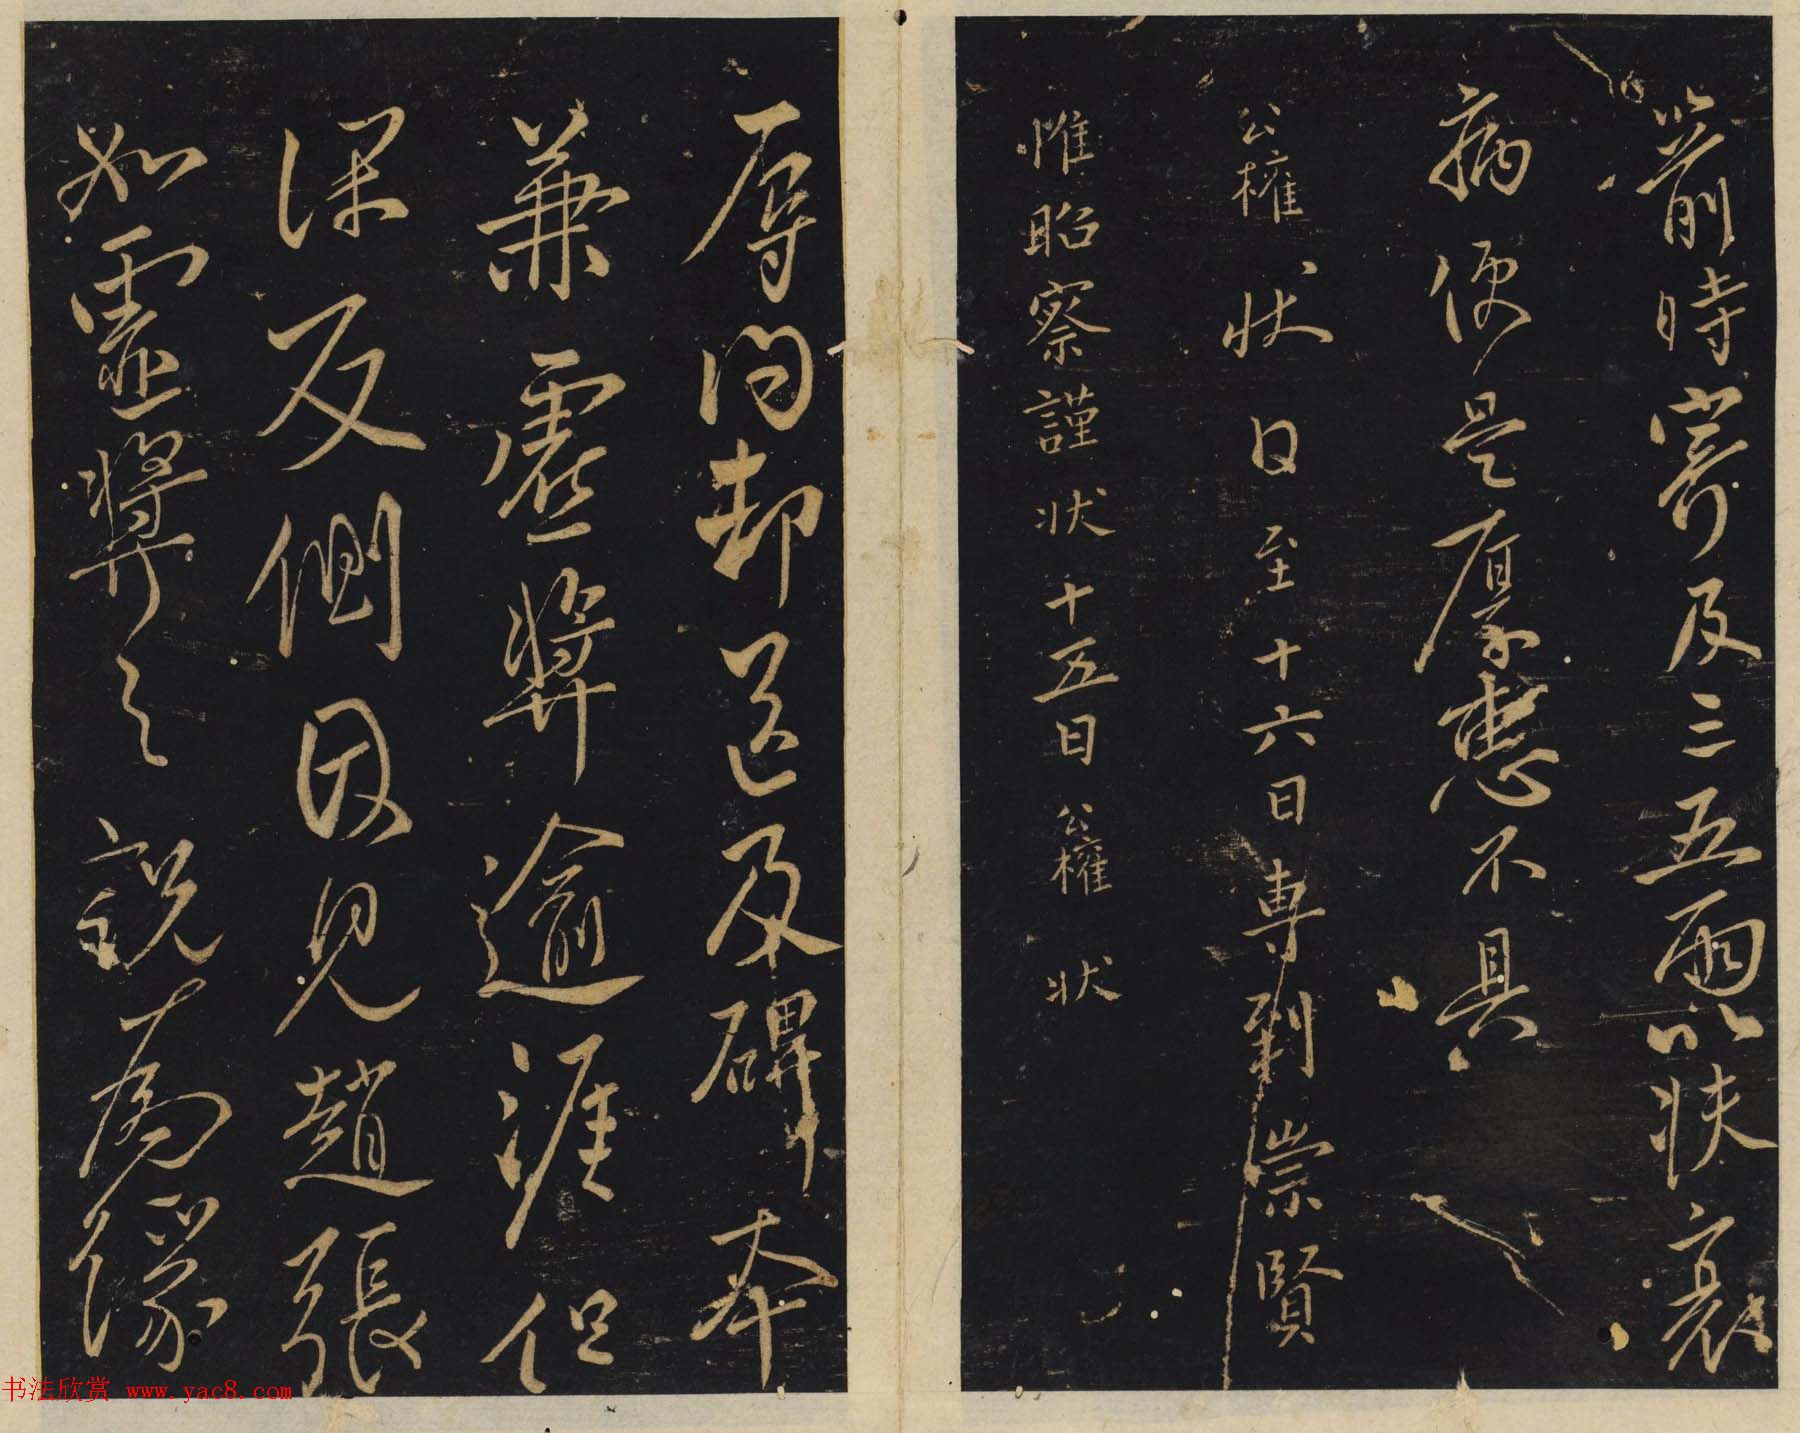 箭時寄及三五兩以扶衰
病便是厚惠不具
公權狀日至十六日專到崇賢
惟昭察謹狀十五日公權狀
辱問却送及碑本
兼虛奬逾涯但
深反側因見趙張
如虛奬之說為緣
书法欣赏 www.yac8.com